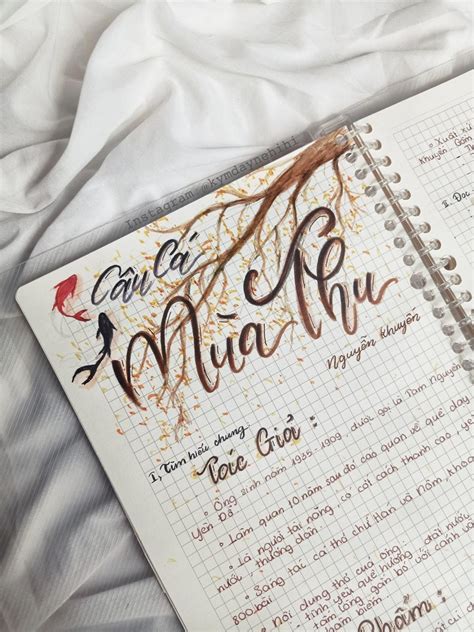 Instagram @kymdaynehihi
Câu Cá
Mùa Thu
Nguyễn Khuyến
I, Tìm hiểu chung
Tác Giả :
• Ông sinh năm 1835 - 1909, dưới gọi là Tam Nguyên
Yên Đổ
• Làm quan 10 năm sau đó cáo quan về quê dạy
• Là người tài năng, có cốt cách thanh cao, yêu
nước thương dân.
• Sáng tác cả thơ chữ Hán và Nôm, khoảng
800 bài
• Nội dung thơ của ông:
- tình yêu quê hương đất nước
- tấm lòng gắn bó với
châm biếm
• Xuất xứ
II. Đọc